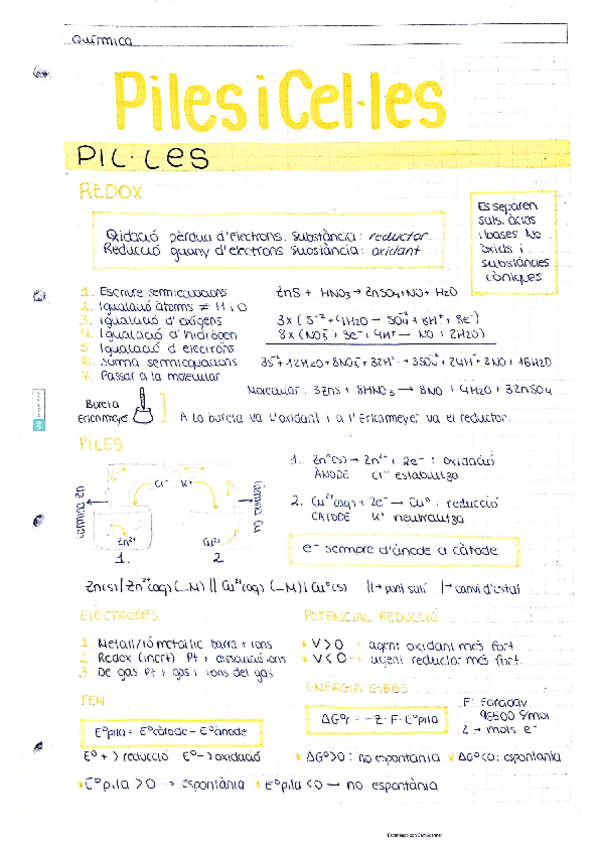 Química
Piles i Cel·les
PIL·LES
REDOX
Oxidació pèrdua d'electrons. Substància: reductor.
Reducció guany d'electrons substància: oxidant
Es separen
sals, àcids
i bases No
òxids i
substàncies
iòniques
1. Escriure semiequacions
2. Igualació àtoms ≠ H i O
3. igualació d'oxígens
4. Igualació d'hidrògen
5. Igualació d'electrons
6. Suma semiequacions
7. Passar a la molecular
ZnS + HNO3 → ZnSO4 + NO + H2O
3x ( S⁻² + 4H2O → SO4 + 8H⁺ + 8e⁻)
8x (NO3 + 3e⁻ + 4H⁺ → NO + 2H2O)
3S⁻² + 12H2O + 8NO3 + 32H⁺ → 3SO4 + 24H⁺ + 8NO + 16H2O
Molecular: 3ZnS + 8HNO3 → 8NO + 4H2O + 3ZnSO4
Bureta
Erlenmeyer
A la bureta va l'oxidant i a l'Erlenmeyer va el reductor.
PILES
Cl⁻ K⁺
Zn²⁺
Cu²⁺
1. 2
1. Zn⁰(s) → Zn²⁺ + 2e⁻ : oxidació
ÀNODE Cl⁻ estabilitza
2. Cu²⁺(aq) + 2e⁻ → Cu⁰ : reducció
CÀTODE K⁺ neutralitza
e⁻ sempre d'ànode a càtode
Zn(s) | Zn²⁺(aq) (_M) || Cu²⁺(aq) (_M) | Cu⁰(s) || → pont salí | → canvi d'estat
ELÈCTRODES
1. Metall/ió metal·lic barra + ions
2. Redox (inert) Pt + dissolució ions
3. De gas Pt + gas i ions del gas
POTENCIAL REDUCCIÓ
* V > 0 → agent oxidant més fort.
* V < 0 → agent reductor més fort.
FEM
E⁰pila = E⁰càtode − E⁰ànode
E⁰ + > reducció E⁰ − > oxidació
* E⁰pila > 0 → espontània * E⁰pila < 0 — no espontània
ENERGIA GIBBS
ΔG⁰r = −Z · F · E⁰pila
F: Faraday
96500 C/mol
Z → mols e⁻
* ΔG⁰>0: no espontània * ΔG⁰<0: espontània
Escaneado con CamScanner